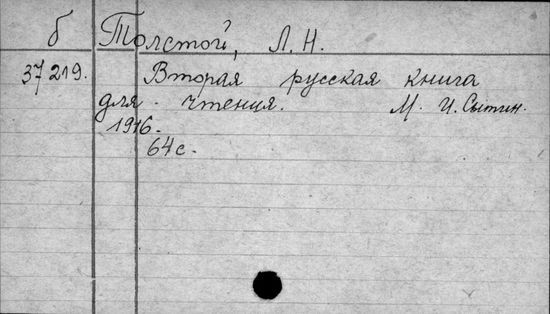 б Толстой, Л. Н.
37219. Вторая русская книга
для чтения. М. И. Сытин.
1916.
64 с.